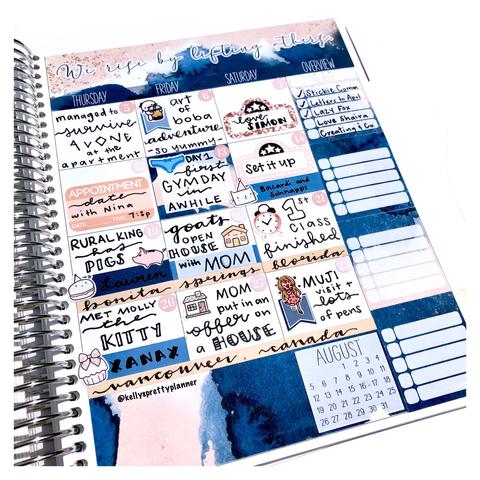 We rise by lifting others
THURSDAY
FRIDAY
SATURDAY
OVERVIEW
5
managed to
survive
AVONE
at the
apartment
6
art
of
boba
adventure
- so yummy -
love
SIMON
✓ Stickie Comm
✓ Letters to April
✓ Lazy Fox
Love Shaira
Creating & Co
APPOINTMENT
date
with Nina
DATE
TIME: 7:30p
13
DAY 1
first
GYM DAY
in
AWHILE
Set it up
Bacardi and
Schnappi
19
RURAL KING
has
PIGS
Lauren
goats
OPEN
HOUSE
with MOM
21
1st
Class
finished
bonita springs florida
26
MET MOLLY
the
KITTY
XANAX
27
MOM
put in an
offer on
a HOUSE
MUJI
visit +
lots
of pens
vancouver, canada
@kellysprettyplanner
AUGUST
1 2 3 4
5 6 7 8 9 10 11
12 13 14 15 16 17 18
19 20 21 22 23 24 25
26 27 28 29 30 31